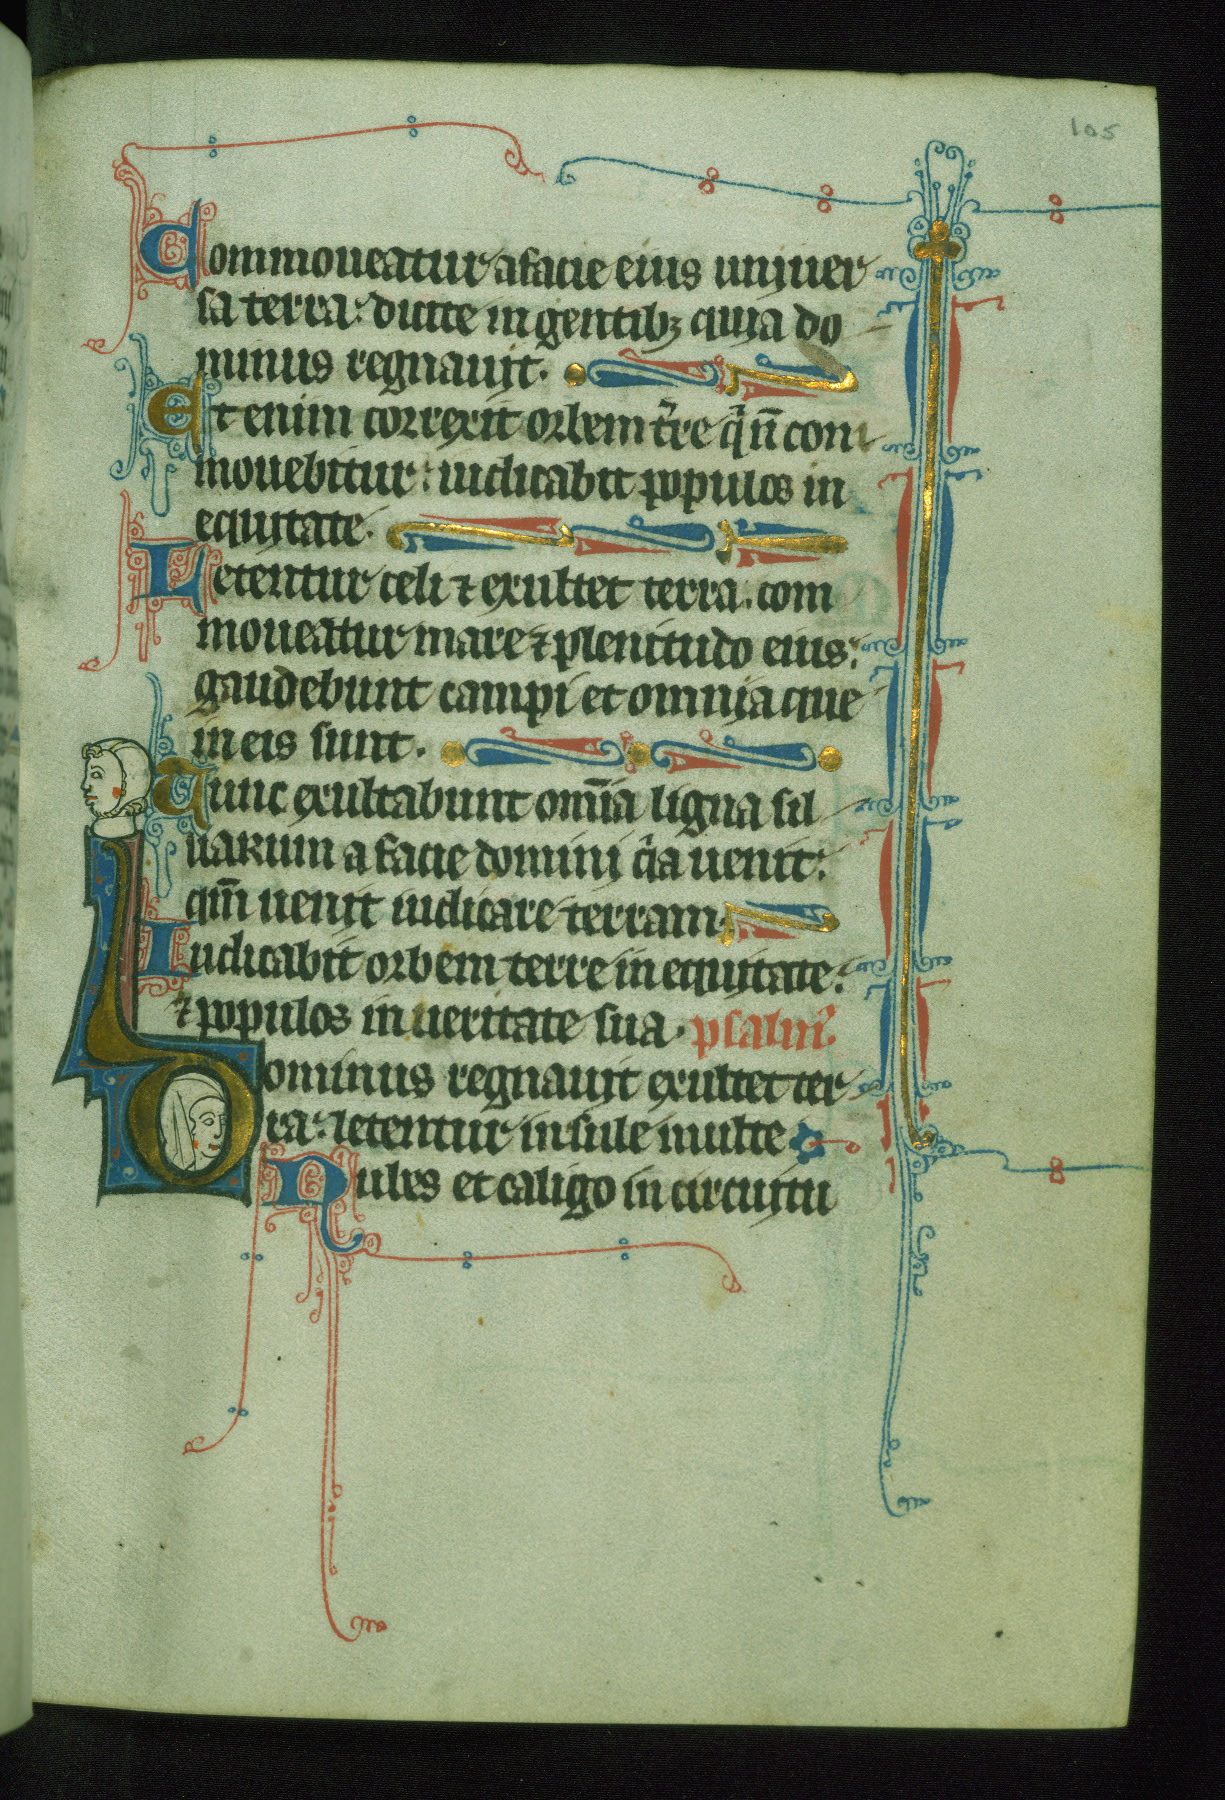 105
Commoueatur a facie eius uniuer
sa terra: dicite in gentibꝫ quia do
minus regnauit.
Et enim correxit orbem t̾re q̇ n̄ com
mouebitur: iudicabit populos in
equitate.
Letentur celi ⁊ exultet terra. com
moueatur mare ⁊ plenitudo eius:
gaudebunt campi et omnia que
in eis sunt.
Tunc exultabunt om̄ia ligna sil
uarum a facie domini q̇a uenit:
qm̄ uenit iudicare terram
Iudicabit orbem terre in equitate:
⁊ populos in ueritate sua. psalm᷒
Dominus regnauit exultet ter
ra: letentur insule multe
Nubes et caligo in circuitu